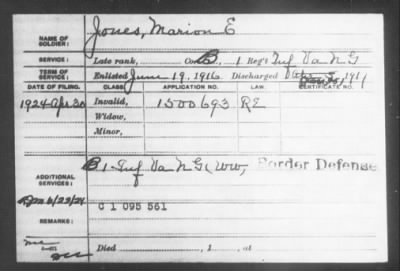 NAME OF SOLDIER: Jones, Marion E
SERVICE: Late rank, Co. B, 1 Reg't Inf Va N G
TERM OF SERVICE: Enlisted June 19, 1916 Discharged 191
DATE OF FILING. CLASS. APPLICATION NO. LAW. CERTIFICATE NO.
1924 Apr. 30 Invalid, 1500693 RE
Widow,
Minor,
ADDITIONAL SERVICES: B 1 Inf Va N G (WW, Border Defense
6/23/24
C 1 095 561
REMARKS:
Died , 1 , at